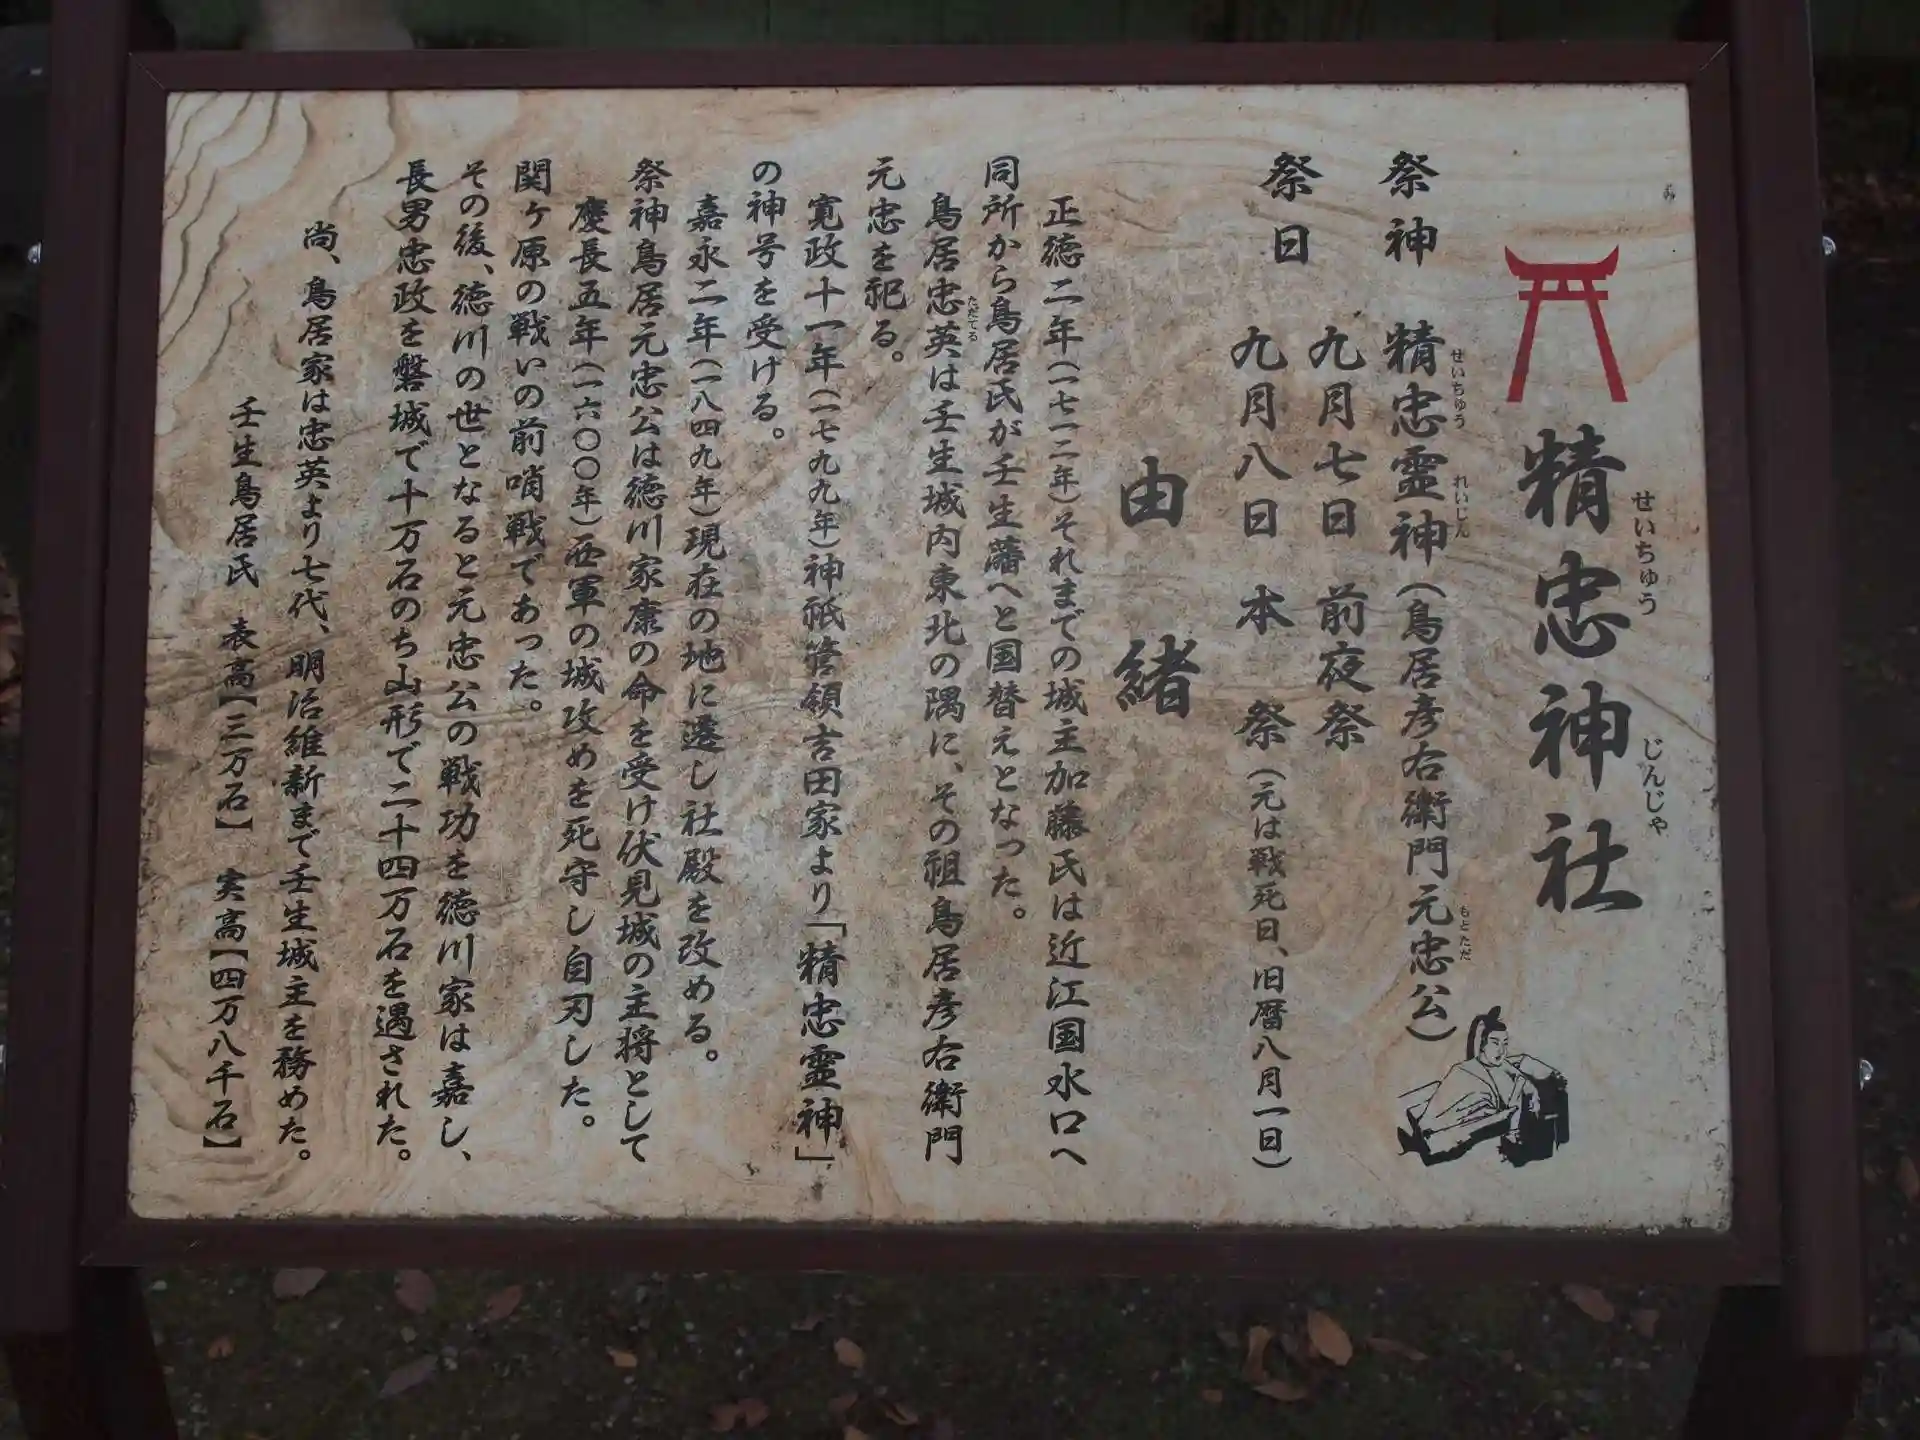 精忠神社
せいちゅう じんじゃ
祭神 精忠霊神(鳥居彦右衛門元忠公)
せいちゅう れいじん もとただ
祭日 九月七日 前夜祭
九月八日 本 祭(元は戦死日、旧暦八月一日)
由緒
正徳二年(一七一二年)それまでの城主加藤氏は近江国水口へ
同所から鳥居氏が壬生藩へと国替えとなった。
鳥居忠英は壬生城内東北の隅に、その祖鳥居彦右衛門
ただてる
元忠を祀る。
寛政十一年(一七九九年)神祇管領吉田家より「精忠霊神」
の神号を受ける。
嘉永二年(一八四九年)現在の地に遷し社殿を改める。
祭神鳥居元忠公は徳川家康の命を受け伏見城の主将として
慶長五年(一六〇〇年)西軍の城攻めを死守し自刃した。
関ヶ原の戦いの前哨戦であった。
その後、徳川の世となると元忠公の戦功を徳川家は嘉し、
長男忠政を磐城で十万石のち山形で二十四万石を遇された。
尚、鳥居家は忠英より七代、明治維新まで壬生城主を務めた。
壬生鳥居氏 表高【三万石】 実高【四万八千石】